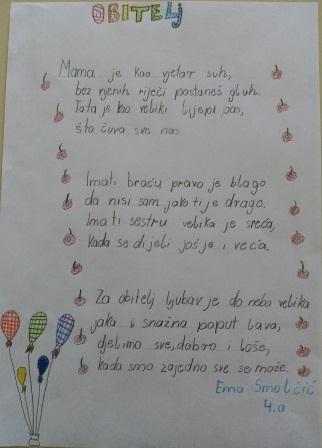 OBITELJ
Mama je kao vjetar suh,
bez njenih riječi postaneš gluh.
Tata je kao veliki lijepi pas,
što čuva sve nas.
Imati braću pravo je blago
da nisi sam jako ti je drago.
Imati sestru velika je sreća,
kada se dijeli još je i veća.
Za obitelj ljubav je do neba velika
jaka i snažna poput lava,
djelimo sve, dobro i loše,
kada smo zajedno sve se može.
Ema Smolčić
4.a